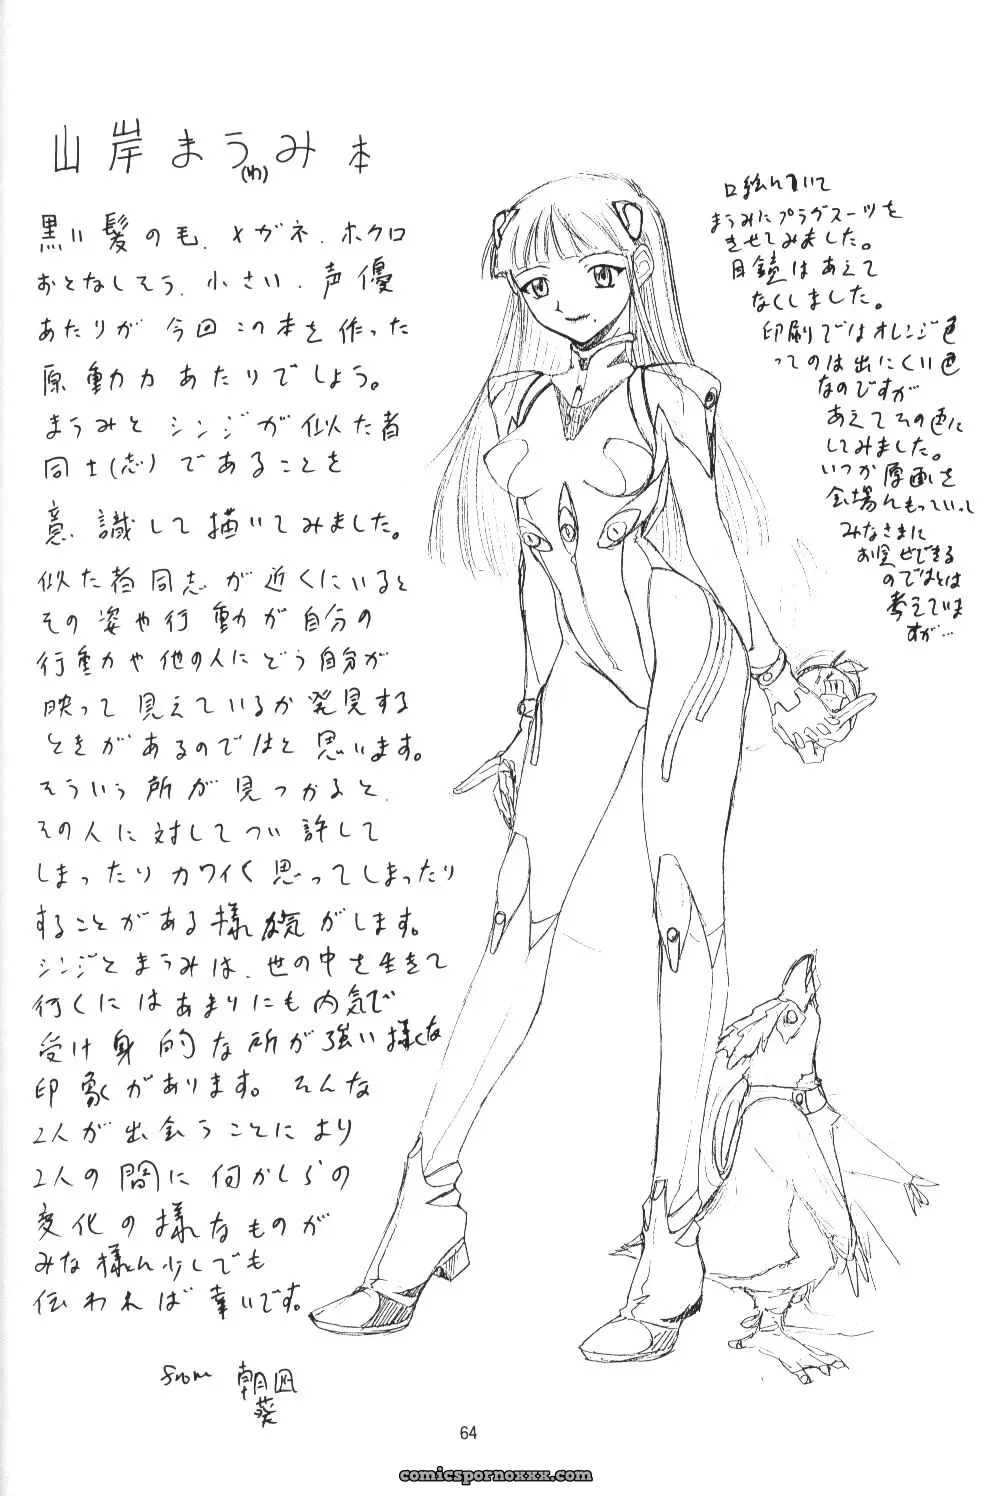 山岸まうみ本
(ゆ)
黒い髪の毛、メガネ、ホクロ
おとなしそう、小さい、声優
あたりが今回この本を作った
原動力あたりでしょう。
まうみとシンジが似た者
同士(志)であることを
意識して描いてみました。
似た者同志が近くにいると
その姿や行動が自分の
行動や他の人にどう自分が
映って見えているか発見する
ときがあるのではと思います。
そういう所が見つかると、
その人に対してつい許して
しまったりカワイく思ってしまったり
することがある様な気がします。
シンジとまうみは、世の中を生きて
行くにはあまりにも内気で
受け身的な所が強い様な
印象があります。そんな
2人が出会うことにより
2人の間に何かしらの
変化の様なものが
みな様に少しでも
伝われば幸いです。
from 朝凪
葵
口絵について
まうみにプラグスーツを
きせてみました。
目鏡はあえて
なくしました。
印刷ではオレンジ色
ってのは出にくい色
なのですが
あえてその色に
してみました。
いつか原画を
会場にもっていって
みなさまに
お見せできる
のではとは
考えていま
すが…
64
comicspornoxxx.com